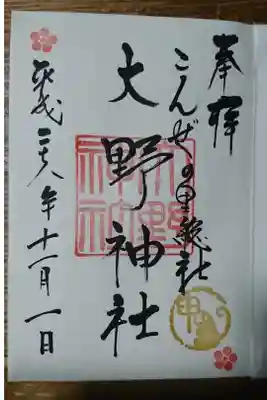 奉拝
こんぜの里総社
大野神社
平成二十八年十一月一日
大野神社
申